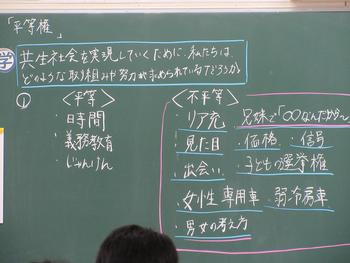 「平等権」
学
共生社会を実現していくために、私たちは
どのような取り組みや努力が求められているだろうか
①
<平等>
・時間
・義務教育
・じゃんけん
<不平等>
・リア充
・見た目
・出会い
・女性専用車
・男女の考え方
兄妹で「○○なんだから～」
・価格
・信号
・子どもの選挙権
・弱冷房車